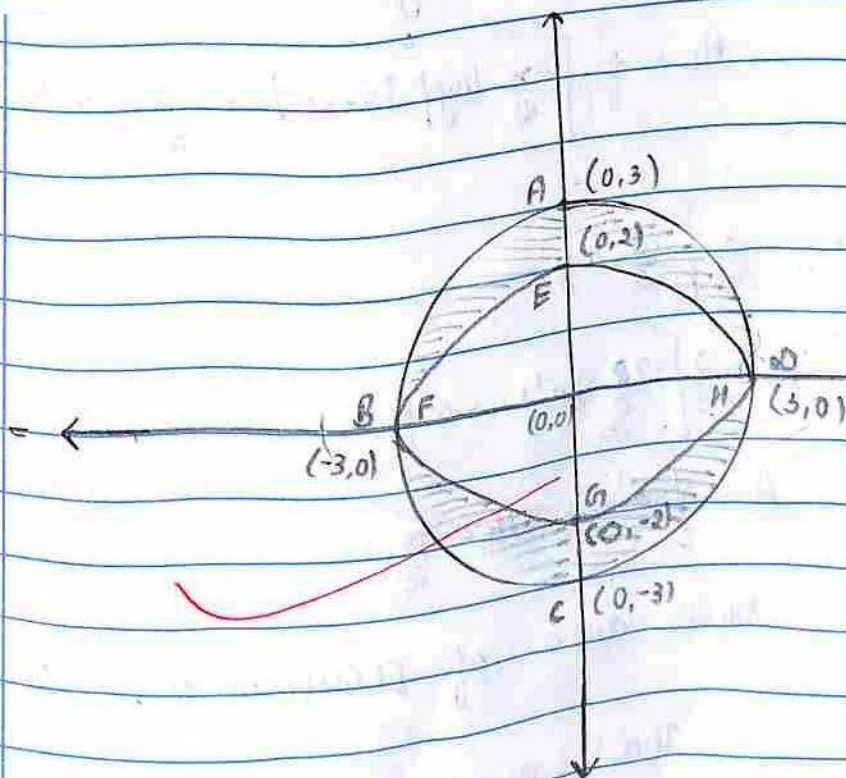 A (0,3)
(0,2)
E
D
B F (0,0) H (3,0)
(-3,0)
G
(0,-2)
C (0,-3)